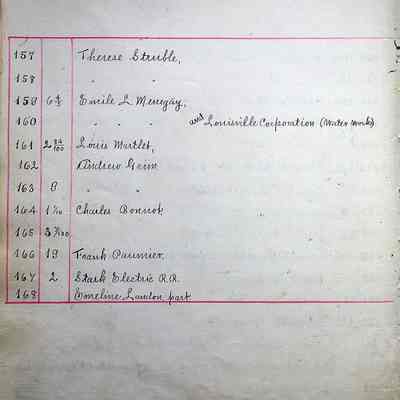 157 Therese Struble,
158 " "
159 6 4/5 Emile L. Menegay,
160 " " " and Louisville Corporation (Water Works)
161 2 34/100 Louis Martlet,
162 Andrew Grim
163 8 " "
164 1 1/10 Charles Bonnot,
165
166 19 Frank Paumier,
167 2 Stark Electric R.R.
168 Emeline Landon part